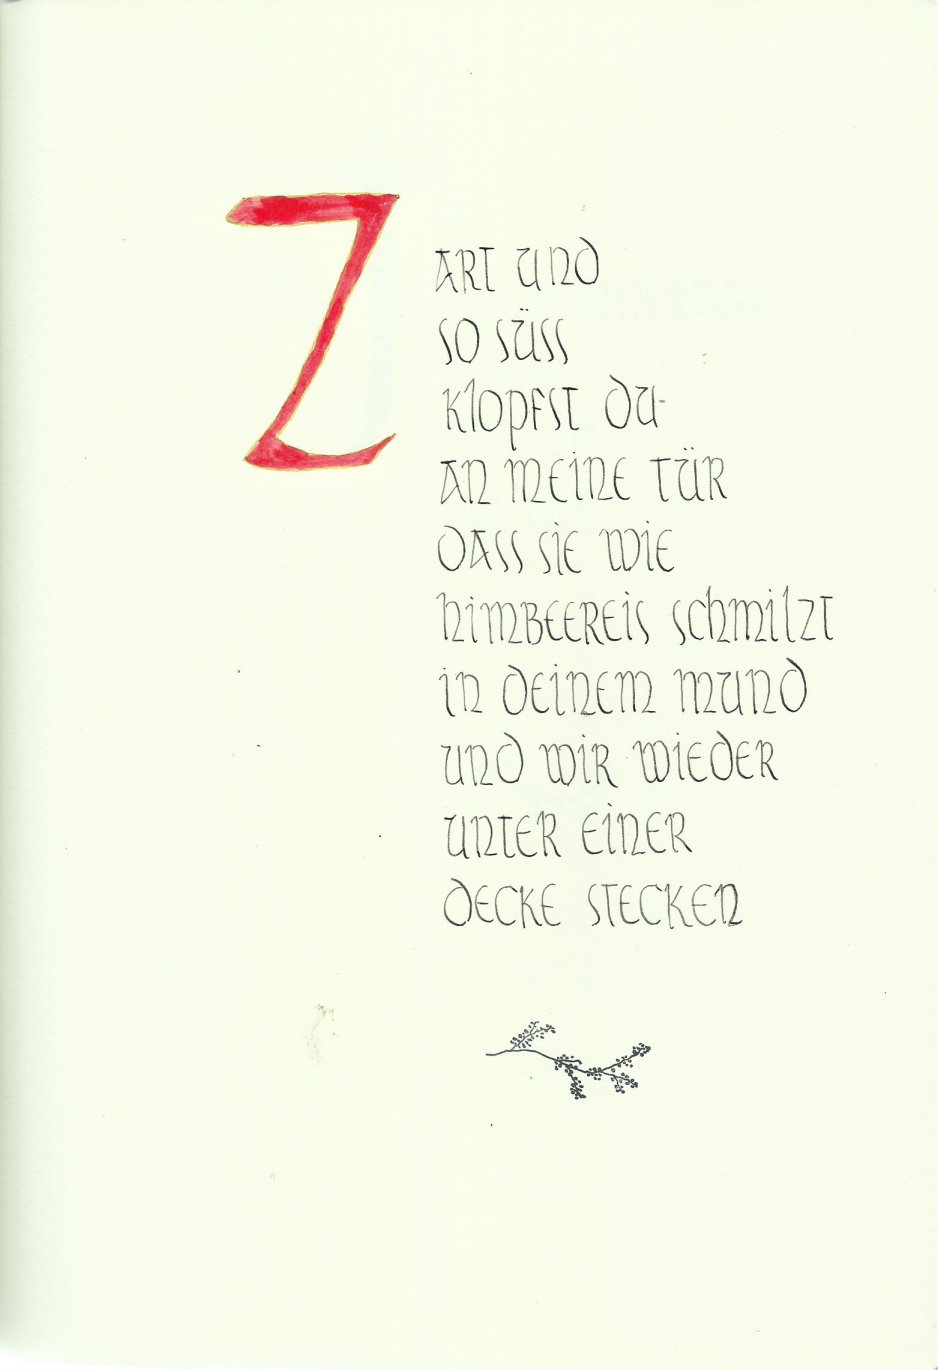 ZART UND
SO SÜSS
KLOPFST DU
AN MEINE TÜR
DASS SIE WIE
HIMBEEREIS SCHMILZT
IN DEINEM MUND
UND WIR WIEDER
UNTER EINER
DECKE STECKEN